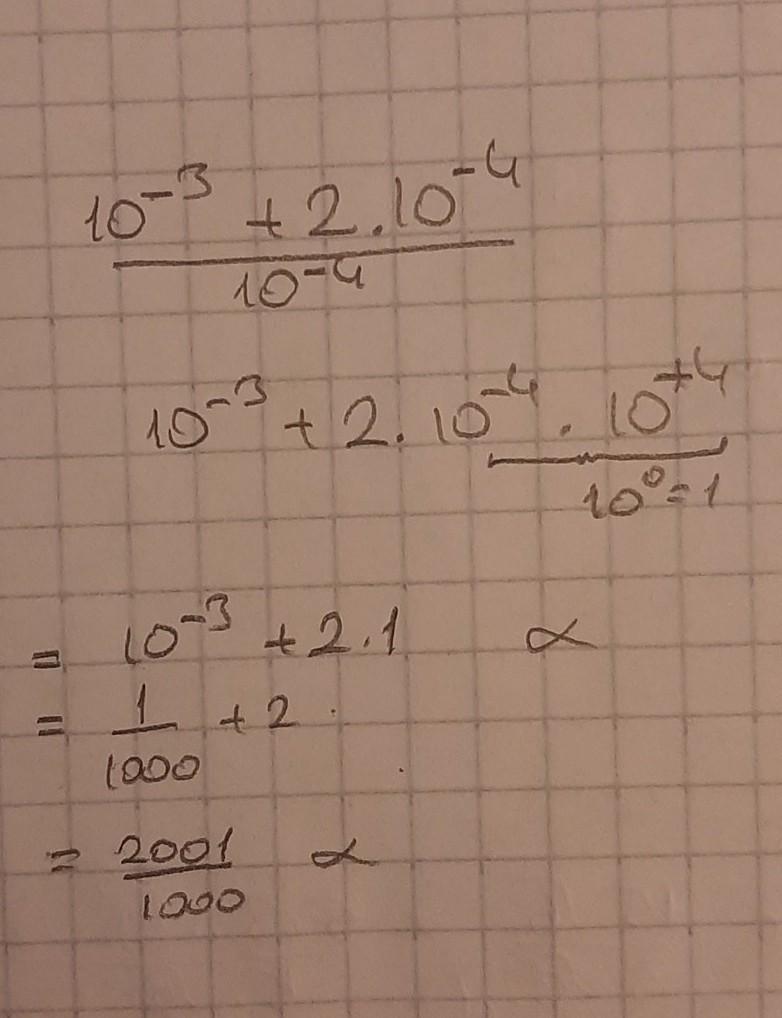 10⁻³ + 2.10⁻⁴
10⁻⁴
10⁻³ + 2. 10⁻⁴ . 10⁺⁴
10⁰=1
= 10⁻³ + 2.1 ∝
= 1 + 2
1000
= 2001 ∝
1000